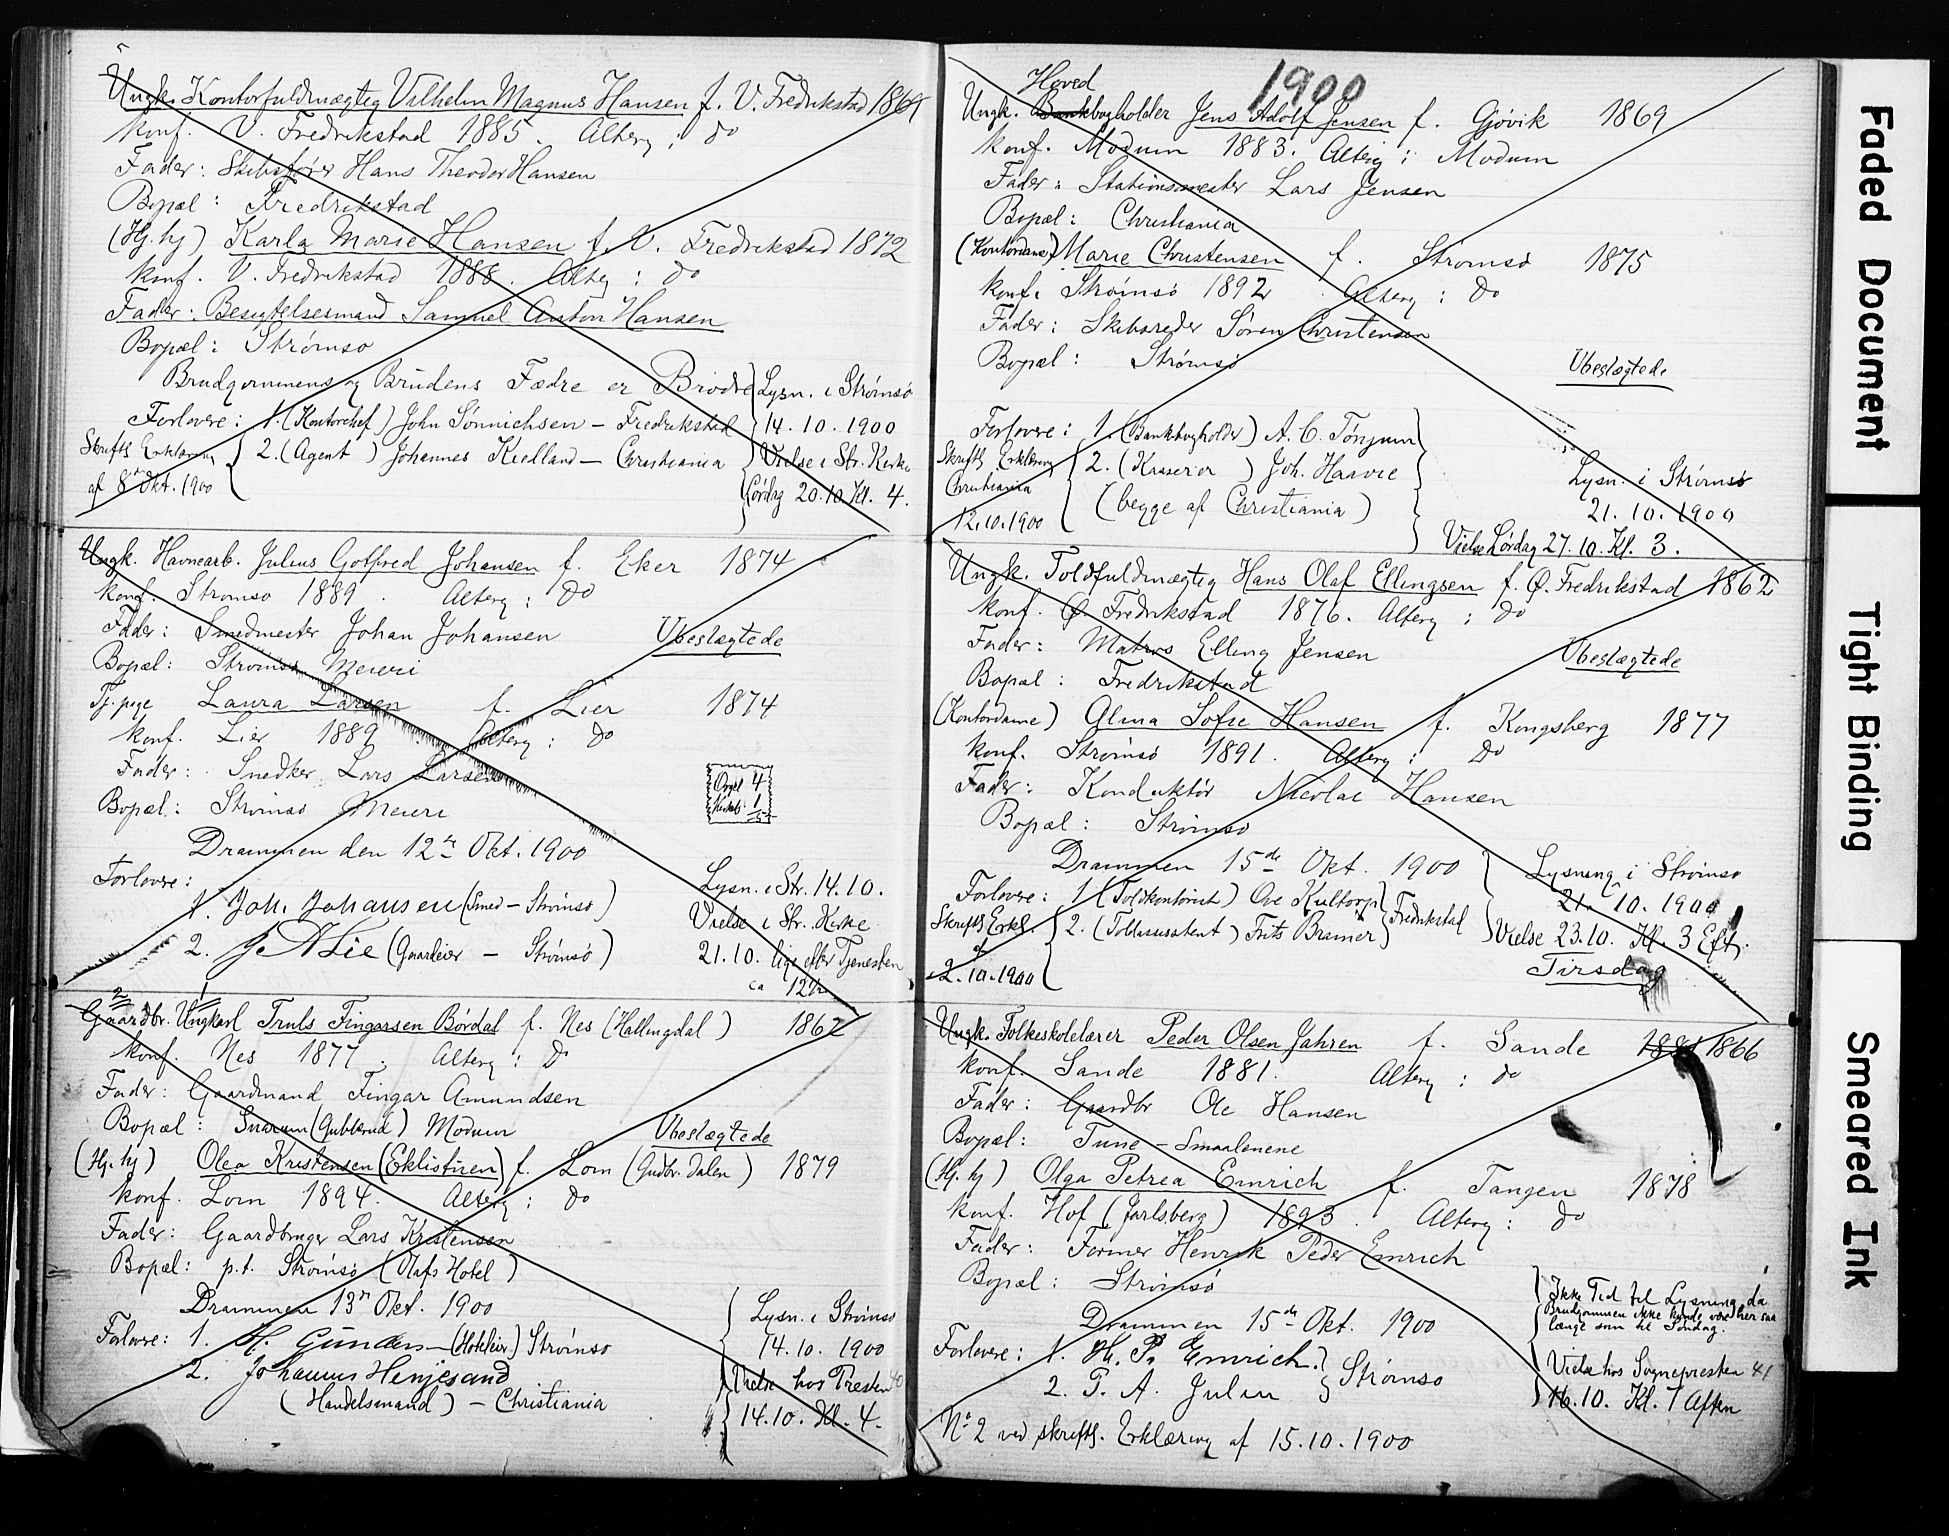 Ungk. Kontorfuldmægtig Vilhelm Magnus Hansen f. V. Fredrikstad 1869
konf. V. Fredrikstad 1885. Alterg: do
Fader: Skibsfører Hans Theodor Hansen
Bopæl: Fredrikstad
(Hj. hj) Karla Marie Hansen f. V. Fredrikstad 1872
konf. V. Fredrikstad 1888. Alterg: do
Fader: Besigtelsesmand Samuel Anton Hansen
Bopæl: Strømsø
Brudgommens og Brudens Fædre er Brødre
Forlovere: 1. (Kontorchef) John Sønnichsen – Fredrikstad
2. (Agent) Johannes Kielland – Christiania
Skriftl. Erklæring
af 8de Okt. 1900
Lysn. i Strømsø
14.10.1900
Vielse i Str. Kirke
Lørdag 20.10. Kl. 4.
Ungk. Havnearb. Julius Gotfred Johansen f. Eker 1874
konf. Strømsø 1889. Alterg: do
Fader: Smedmester Johan Johansen
Ubeslægtede
Bopæl: Strømsø Meieri
Tj. pige Laura Larsen f. Lier 1874
konf. Lier 1889 Alterg: do
Fader: Snedker Lars Larsen
Bopæl: Strømsø Meieri
Orgel 4
1
5
Drammen den 12te Okt. 1900
Forlovere:
1. Joh. Johansen (Smed – Strømsø)
2. (Gaardeier – Strømsø)
Lysn. i Str. 14.10.
Vielse i Str. Kirke
21.10. lige efter Tjenesten
ca 12½
2 1
Gaardbr. Ungkarl Truls Fingarsen Børdal f. Nes (Hallingdal) 1862
konf. Nes 1877. Alterg: Do
Fader: Gaardmand Fingar Amundsen
Bopæl: Snarum (Gubberud) Modum
Ubeslægtede
(Hj. hj) Olea Kristensen (Eklistuen) f. Lom (Gudbr. dalen) 1879
konf. Lom 1894. Alterg: do
Fader: Gaardbruger Lars Kristensen
Bopæl: p.t. Strømsø (Olafs Hotel)
Drammen 13de Okt. 1900
Forlovere: 1. H. Gundersen (Hoteleier) Strømsø
2. Johannes Henjesand
(Handelsmand) – Christiania
Lysn. i Strømsø
14.10.1900
Vielse hos Presten
14.10. Kl. 4.
1900
Hoved
Ungk. Bankbogholder Jens Adolf Jensen f. Gjøvik 1869
konf. Modum 1883. Alterg: Modum
Fader: Stationsmester Lars Jensen
Bopæl: Christiania
(Kontordame) Marie Christensen f. Strømsø 1875
konf. Strømsø 1892. Alterg: Do
Fader: Skibsreder Søren Christensen
Bopæl: Strømsø
Ubeslægtede
Forlovere: 1. (Bankbogholder) A. C. Tønjum
2. (Kasserer) Joh. Haavie
(begge af Christiania)
Skriftl. Erklæring
Christiania
12.10.1900
Lysn. i Strømsø
21.10.1900
Vielse Lørdag 27.10. Kl. 3.
Ungk. Toldfuldmægtig Hans Olaf Ellingsen f. Ø. Fredrikstad 1862
konf. Ø. Fredrikstad 1876. Alterg: Do
Fader: Matros Elling Jensen
Ubeslægtede
Bopæl: Fredrikstad
(Kontordame) Alma Sofie Hansen f. Kongsberg 1877
konf. Strømsø 1891. Alterg: Do
Fader: Konduktør Nicolai Hansen
Bopæl: Strømsø
Drammen 15de Okt. 1900
Forlovere: 1. (Toldkontorist) Ove Kultorp
2. (Toldassistent) Frits Bramer
Fredrikstad
Skriftl. Erkl.
af
2.10.1900
Lysning i Strømsø
21.10.1900
Vielse 23.10. Kl. 3 Eft.
Tirsdag
Ungk. Folkeskolelærer Peder Olsen Jahren f. Sande 1881 1866
konf. Sande 1881. Alterg: do
Fader: Gaardbr Ole Hansen
Bopæl: Tune – Smaalenene
(Hj. hj) Olga Petrea Emrich f. Tangen 1878
konf. Hof (Jarlsberg) 1893. Alterg: do
Fader: Former Henrik Peder Emrich
Bopæl: Strømsø
Drammen 15de Okt. 1900
Forlovere: 1. H. P. Emrich
2. P. A. Julin
Strømsø
Ikke Tid til Lysning, da
Brudgommen ikke kunde være her saa
længe som til Søndag.
Vielse hos Sognepresten
16.10. Kl. 7 Aften
No 2 ved skriftl. Erklæring af 15.10.1900
Faded Document
Tight Binding
Smeared Ink